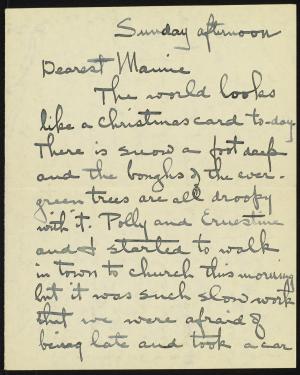 Sunday afternoon
Dearest Mamie
The world looks
like a christmas card to-day
There is snow a foot deep
and the boughs of the ever-
green trees are all droopy
with it. Polly and Ernestine
and I started to walk
in town to church this morning
but it was such slow work
that we were afraid of
being late and took a car